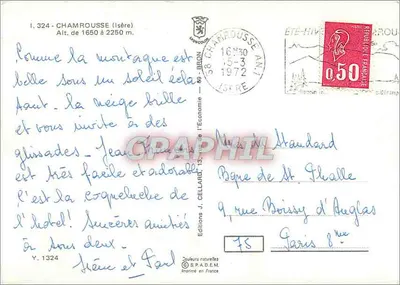 I. 324 - CHAMROUSSE (Isère)
Alt. de 1650 à 2250 m.
Comme la montagne est
belle sous un soleil écla
tant. la neige brille
et vous invite à des
glissades. Jean
est très facile et adorable
C'est la coqueluche de
l'hotel! Sincères amitiés
à vous deux.
Irène et Paul
Y. 1324
Editions J. CELLARD, de l'Economie - 69 - BRON
Couleurs naturelles
S.P.A.D.E.M.
Imprimé en France
38 CHAMROUSSE
16H30
5-3
1972
ISERE
ETE-HIVER
REPUBLIQUE FRANCAISE
0,50
CPAPHIL
Standard
Bque de St Phalle
9, rue Boissy d'Anglas
75
Paris 8me